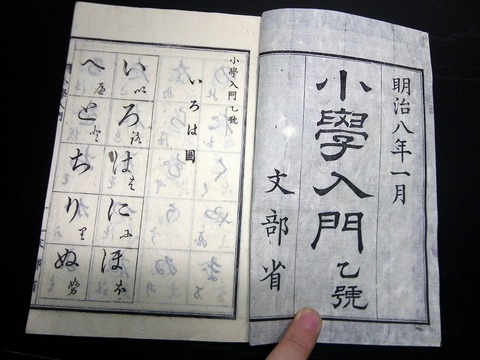 明治八年一月
小學入門乙號
文部省
小學入門乙號
いろは圖
い
ろ
は
に
ほ
へ
と
ち
り
ぬ